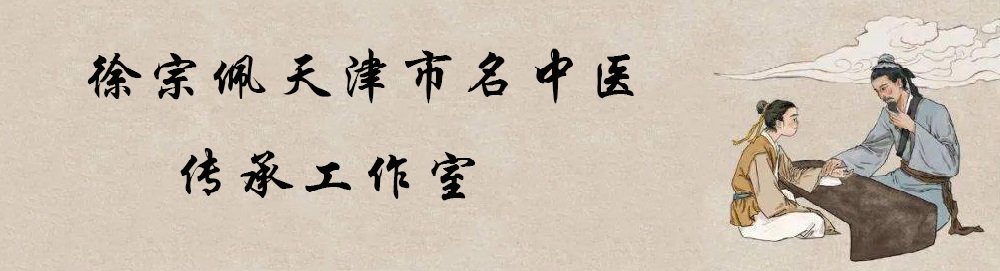 徐宗佩天津市名中医
传承工作室